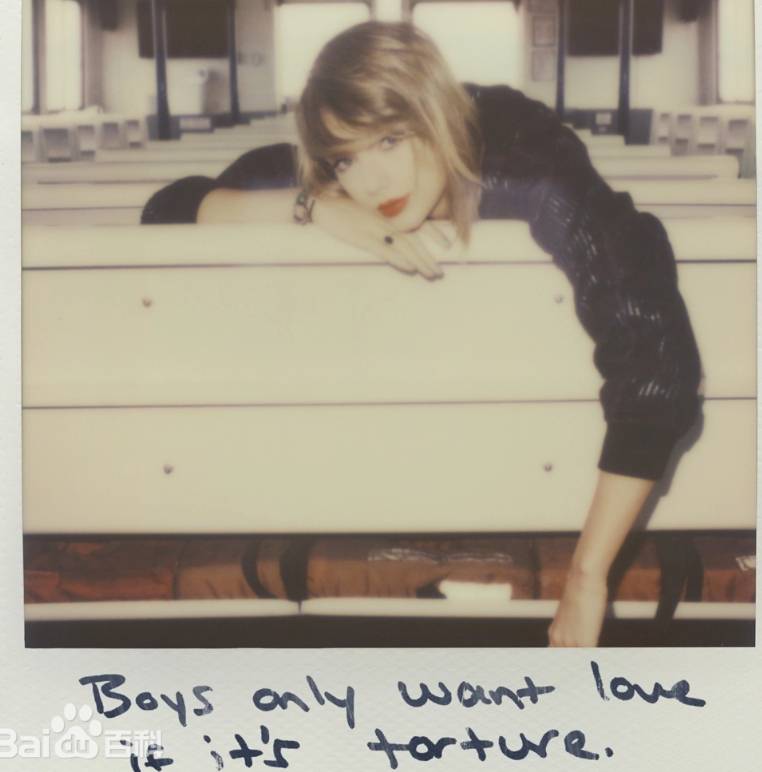 Boys only want love
if it's torture.
Baidu百科